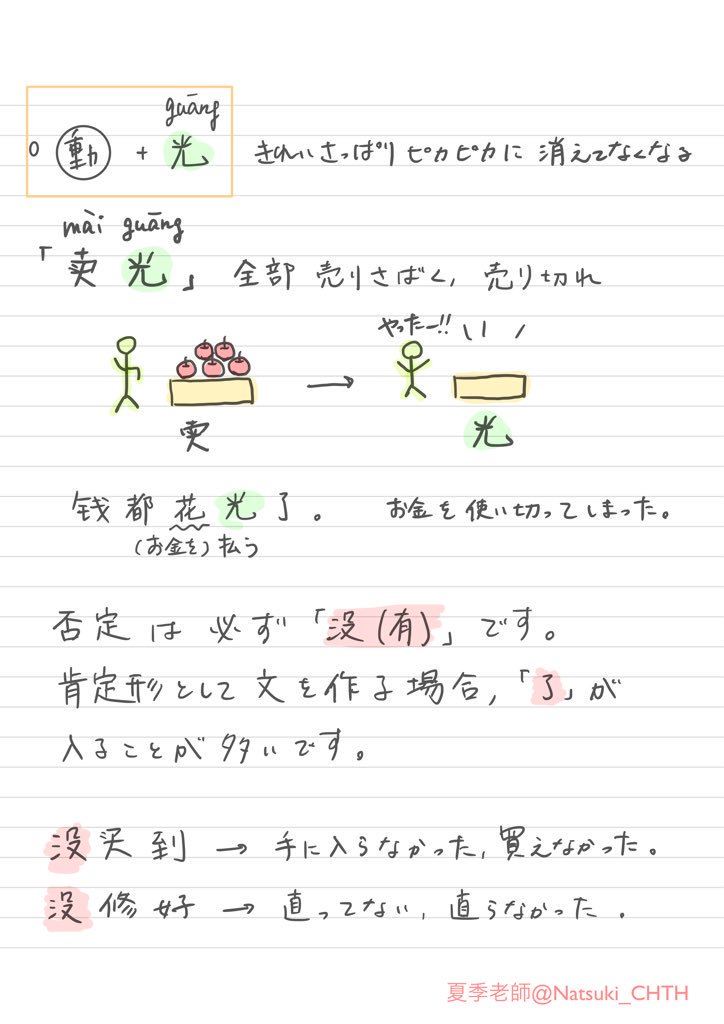 guāng
○ 動 + 光 きれいさっぱりピカピカに消えてなくなる
mài guāng
「卖光」全部売りさばく, 売り切れ
やったー!!
卖
光
钱都花光了。 お金を使い切ってしまった。
(お金を)払う
否定は必ず「没(有)」です。
肯定形として文を作る場合,「了」が
入ることが多いです。
没买到 → 手に入らなかった, 買えなかった。
没修好 → 直ってない, 直らなかった.
夏季老師@Natsuki_CHTH